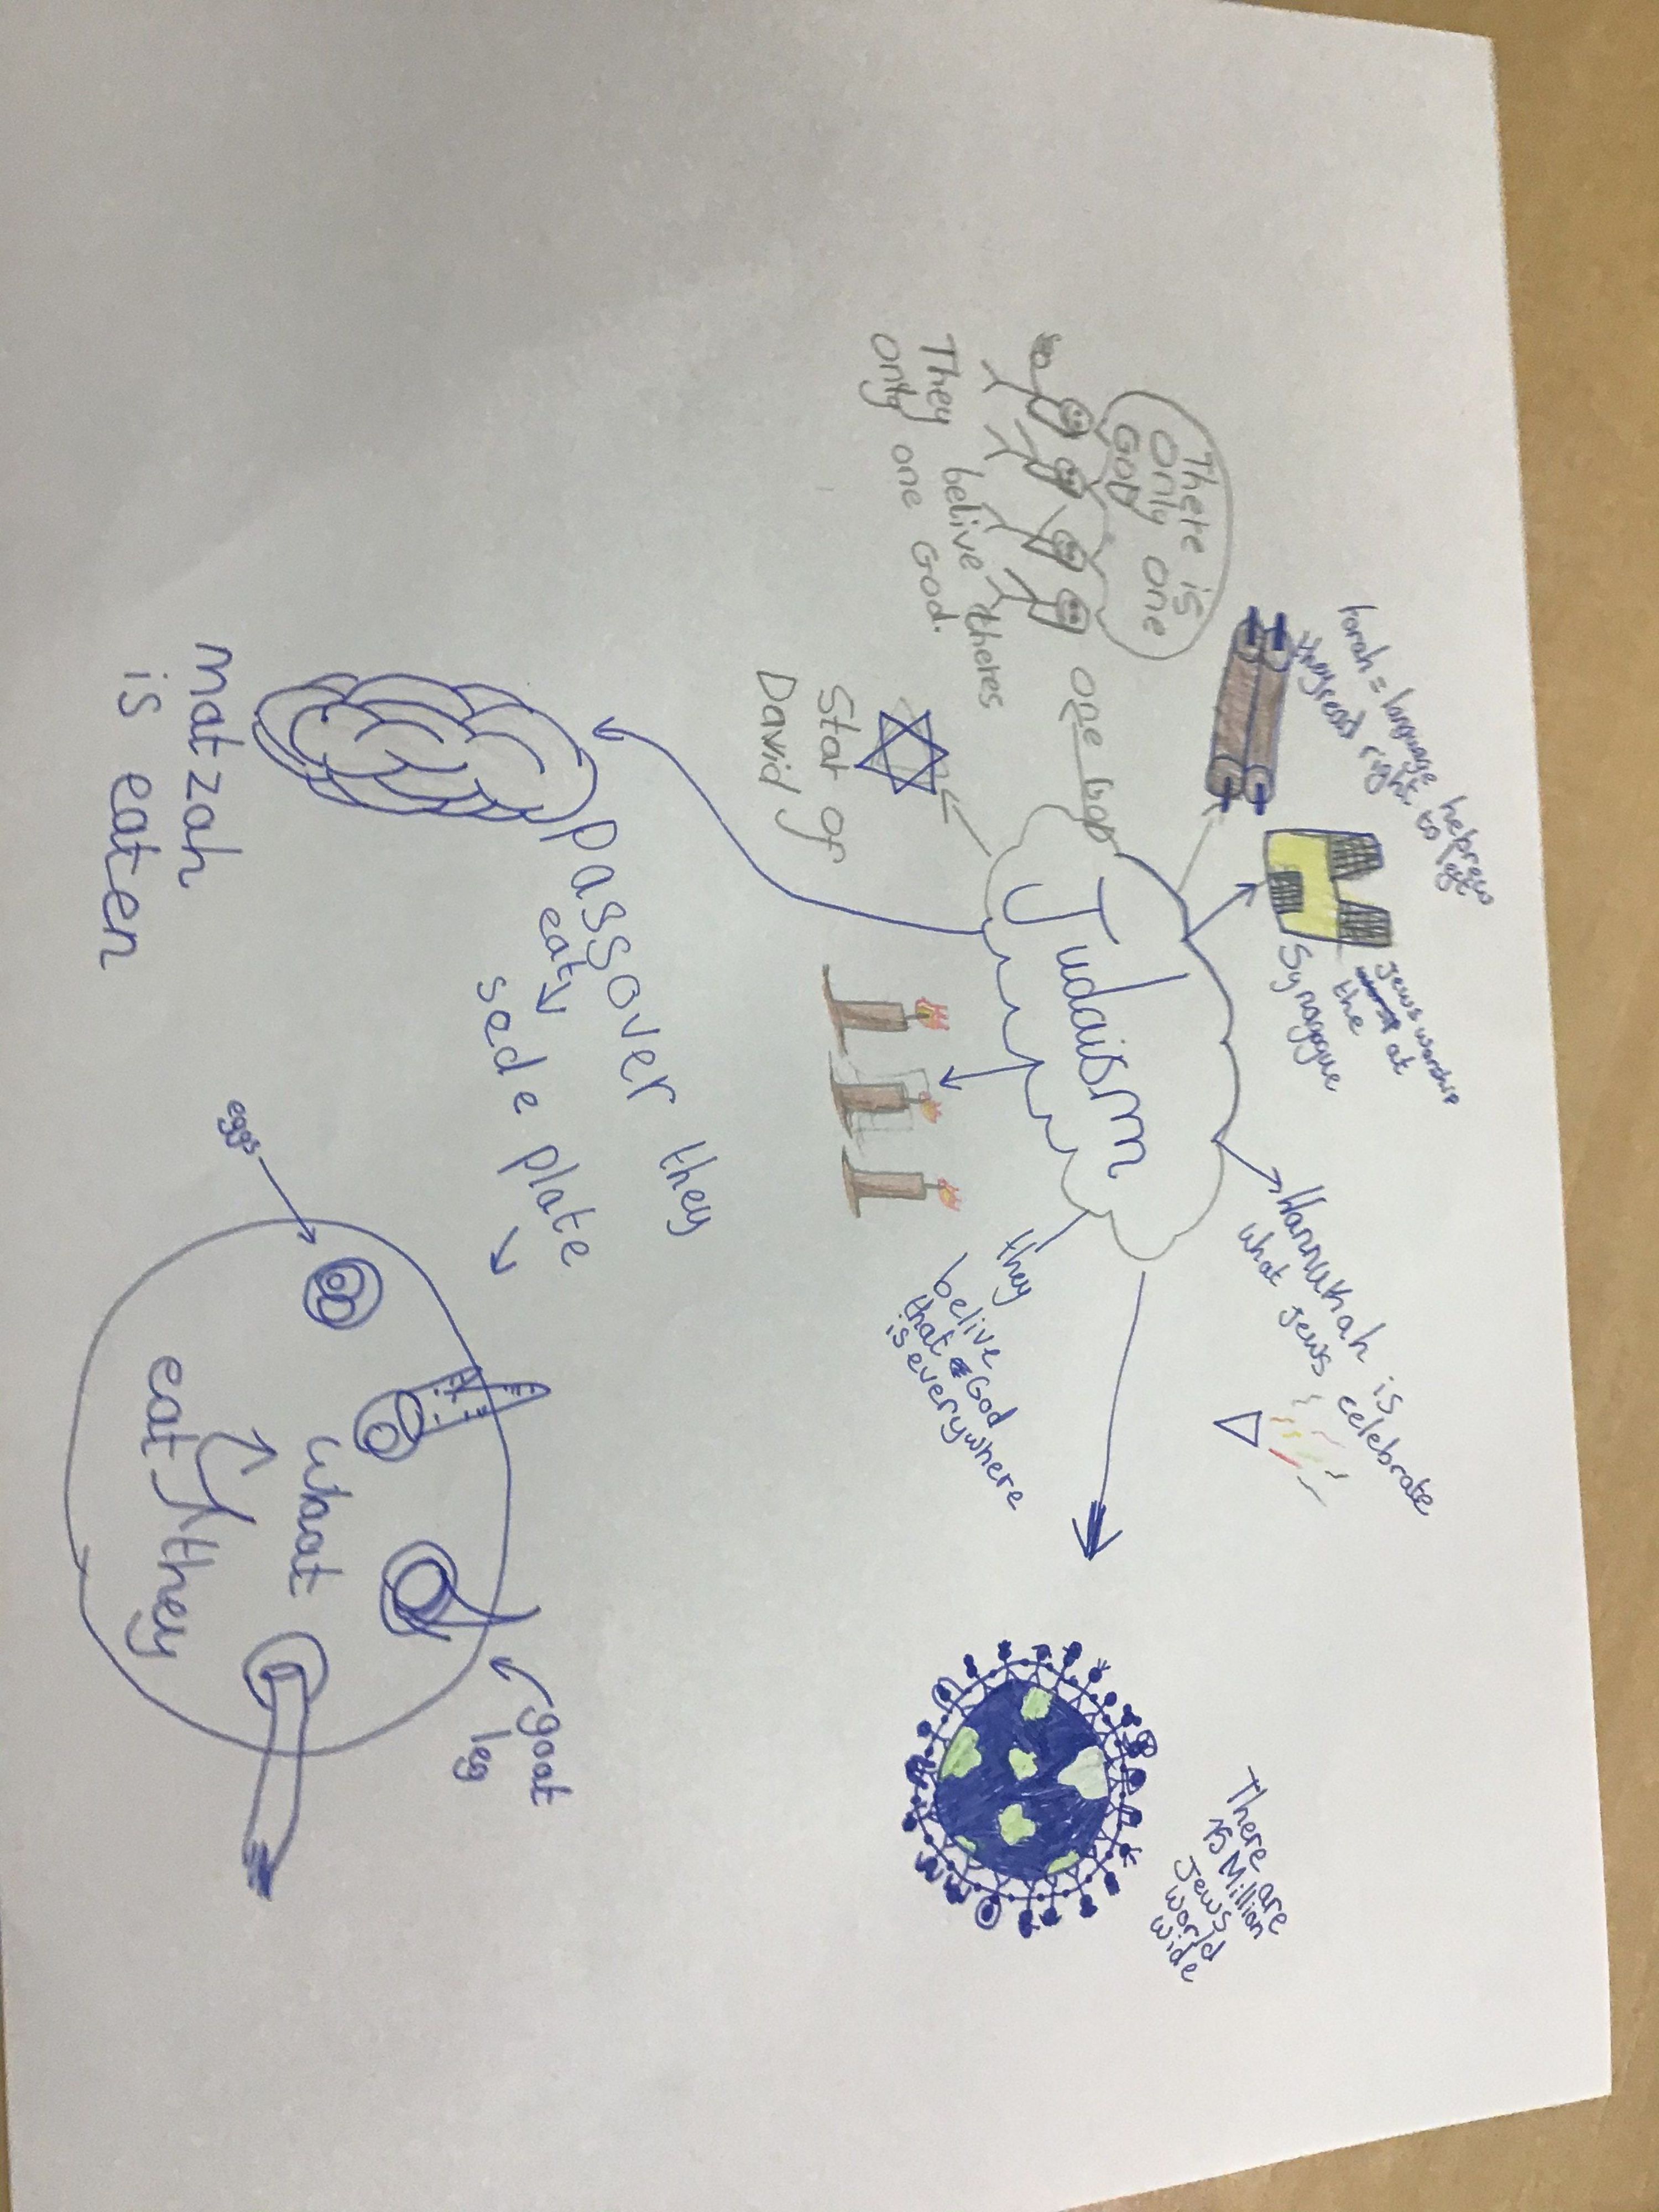 Judaism
There is
only one
GOD
They belive theres
only one God.
one GOD
torah = language hebrew
they read right to left
Jews worship
at
the
Synagogue
Hannukah is
what Jews celebrate
There are
15 Million
Jews
world
wide
they
belive
that God
is everywhere
Star of
David
Passover they
eat
sede plate
matzah
is eaten
eggs
goat
leg
what
they
eat